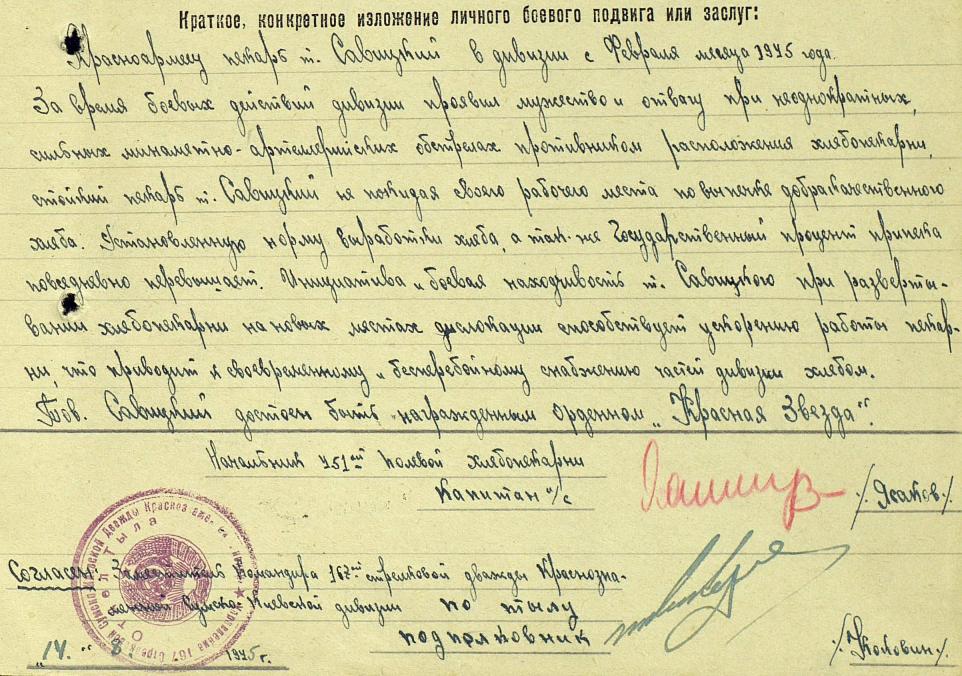 Краткое, конкретное изложение личного боевого подвига или заслуг:
Красноармеец пекарь т. Савицкий в дивизии с Февраля месяца 1945 года.
За время боевых действий дивизии проявил мужество и отвагу при неоднократных,
сильных минаметно-артеллерийских обстрелах противником расположения хлебопекарни,
стойкий пекарь т. Савицкий не покидая своего рабочего места по выпечке добракачественного
хлеба. Установленную норму выработки хлеба, а так-же Государственный процент припека
повседневно перевышает. Инициатива и боевая находчивость т. Савицкого при разверты-
вании хлебопекарни на новых местах дислокации способствует ускорению работы пекар-
ни, что приводит к своевременному и бесперебойному снабжению частей дивизии хлебом.
Тов. Савицкий достоен быть награжденным орденном „Красная Звезда".
Начальник 451ой Полевой хлебопекарни
Капитан и/с
/Ясаков./
Согласен: Заместитель Командира 167ой стрелковой дважды Краснозна-
менной Сумско-Киевской дивизии по тылу
подполковник
/Уколовин./
"14." 5. 1945 г.
Отдел Тыла